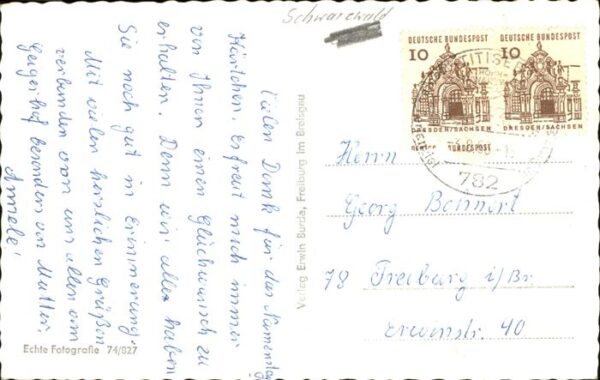 Schwarzwald
Vielen Dank für das Namenstag
Kärtchen. Es freut mich immer
von Ihnen einen Glückwunsch zu
erhalten. Denn wir alle haben
Sie noch gut in Erinnerung.
Mit vielen herzlichen Grüßen
verbunden von uns allen am
Geigerhof besonders von Mutter.
Annele!
Echte Fotografie 74/827
Verlag Erwin Burda, Freiburg im Breisgau
DEUTSCHE BUNDESPOST
10
DRESDEN/SACHSEN
DEUTSCHE BUNDESPOST
10
DRESDEN/SACHSEN
BUNDESPOST
782
Herrn
Georg Bohnert
78 Freiburg i/Br
Erwinstr. 40